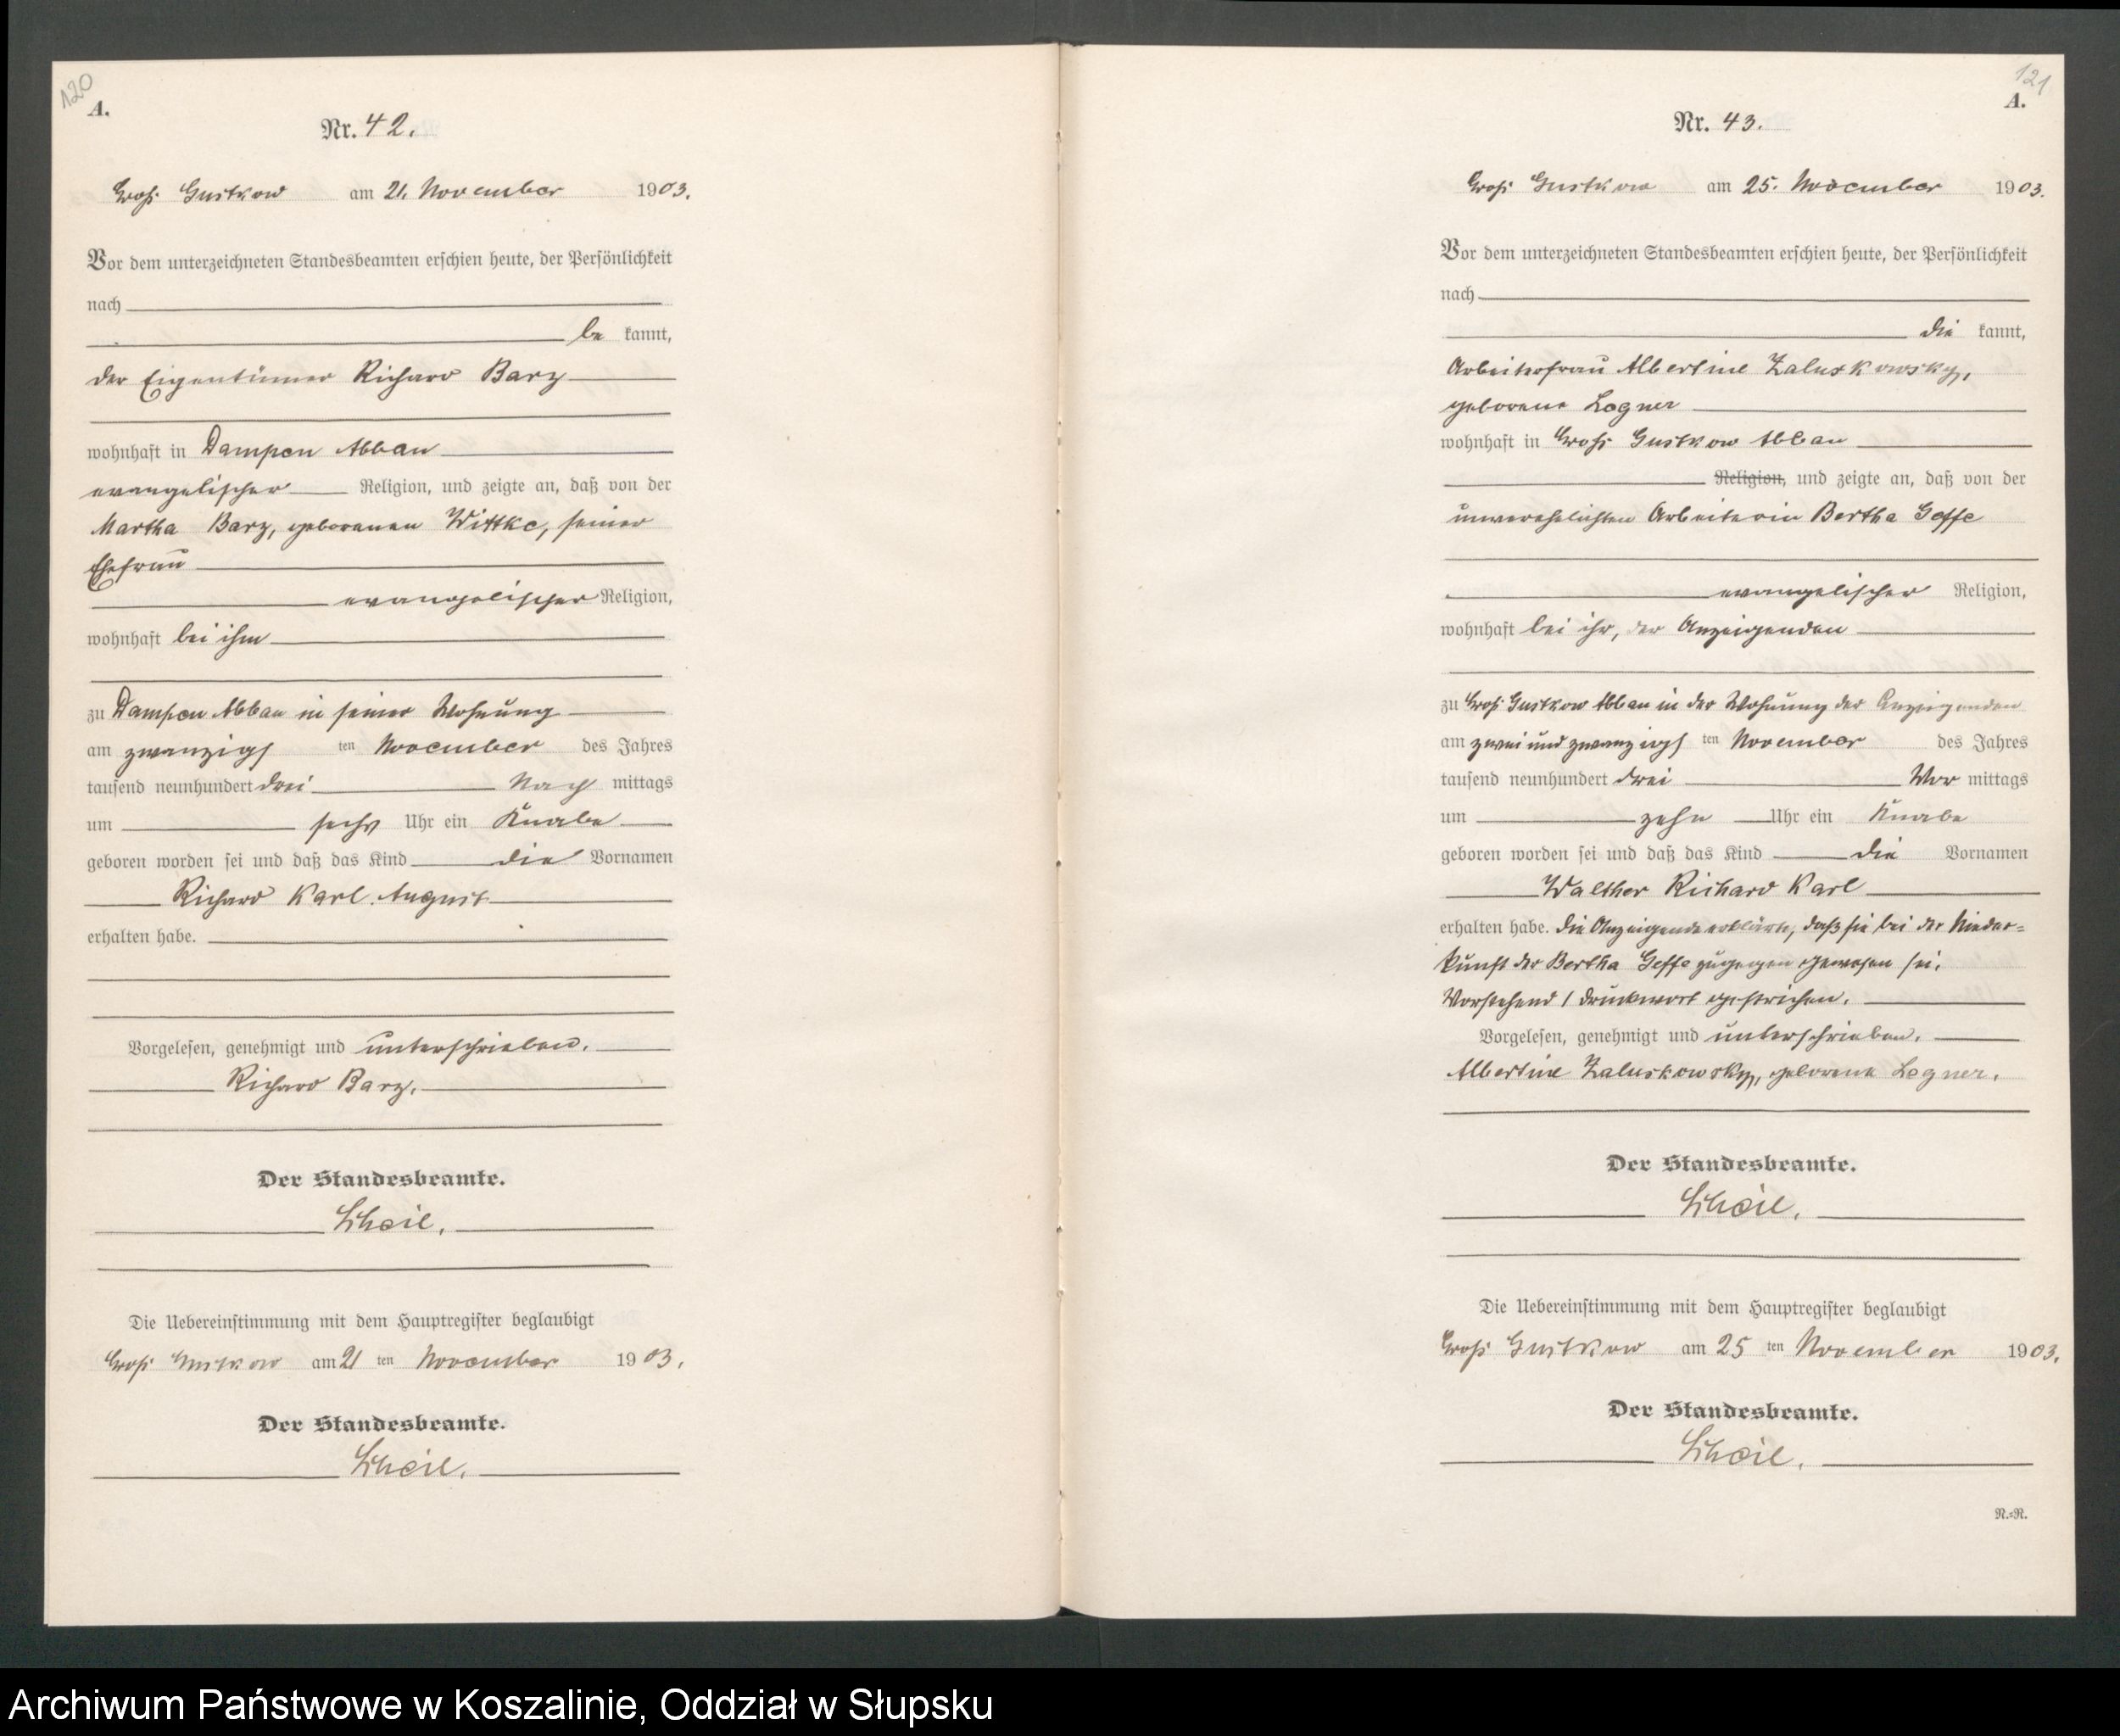 120
A.
Nr. 42.
Groß Gustkow am 21. November 1903.
Vor dem unterzeichneten Standesbeamten erschien heute, der Persönlichkeit
nach
be kannt,
der Eigentümer Richard Barz
wohnhaft in Dampen Abbau
evangelischer Religion, und zeigte an, daß von der
Martha Barz, geborenen Wittke, seiner
Ehefrau
evangelischer Religion,
wohnhaft bei ihm
zu Dampen Abbau in seiner Wohnung
am zwanzigs ten November des Jahres
tausend neunhundert drei Nach mittags
um sechs Uhr ein Knabe
geboren worden sei und daß das Kind die Vornamen
Richard Karl August
erhalten habe.
Vorgelesen, genehmigt und unterschrieben.
Richard Barz.
Der Standesbeamte.
Scheil.
Die Uebereinstimmung mit dem Hauptregister beglaubigt
Groß Gustkow am 21 ten November 1903.
Der Standesbeamte.
Scheil.
121
A.
Nr. 43.
Groß Gustkow am 25. November 1903.
Vor dem unterzeichneten Standesbeamten erschien heute, der Persönlichkeit
nach
die kannt,
Arbeiterfrau Albertine Zaluskowsky,
geborene Logner
wohnhaft in Groß Gustkow Abbau
Religion, und zeigte an, daß von der
unverehelichten Arbeiterin Bertha Geffe
evangelischer Religion,
wohnhaft bei ihr, der Anzeigenden
zu Groß Gustkow Abbau in der Wohnung der Anzeigenden
am zwei und zwanzigs ten November des Jahres
tausend neunhundert drei Vor mittags
um zehn Uhr ein Knabe
geboren worden sei und daß das Kind die Vornamen
Walther Richard Karl
erhalten habe. Die Anzeigende erklärte, daß sie bei der Nieder=
kunft der Bertha Geffe zugegen gewesen sei.
Vorstehend 1 Druckwort gestrichen.
Vorgelesen, genehmigt und unterschrieben.
Albertine Zaluskowsky, geborene Logner.
Der Standesbeamte.
Scheil.
Die Uebereinstimmung mit dem Hauptregister beglaubigt
Groß Gustkow am 25 ten November 1903.
Der Standesbeamte.
Scheil.
N.=N.
Archiwum Państwowe w Koszalinie, Oddział w Słupsku